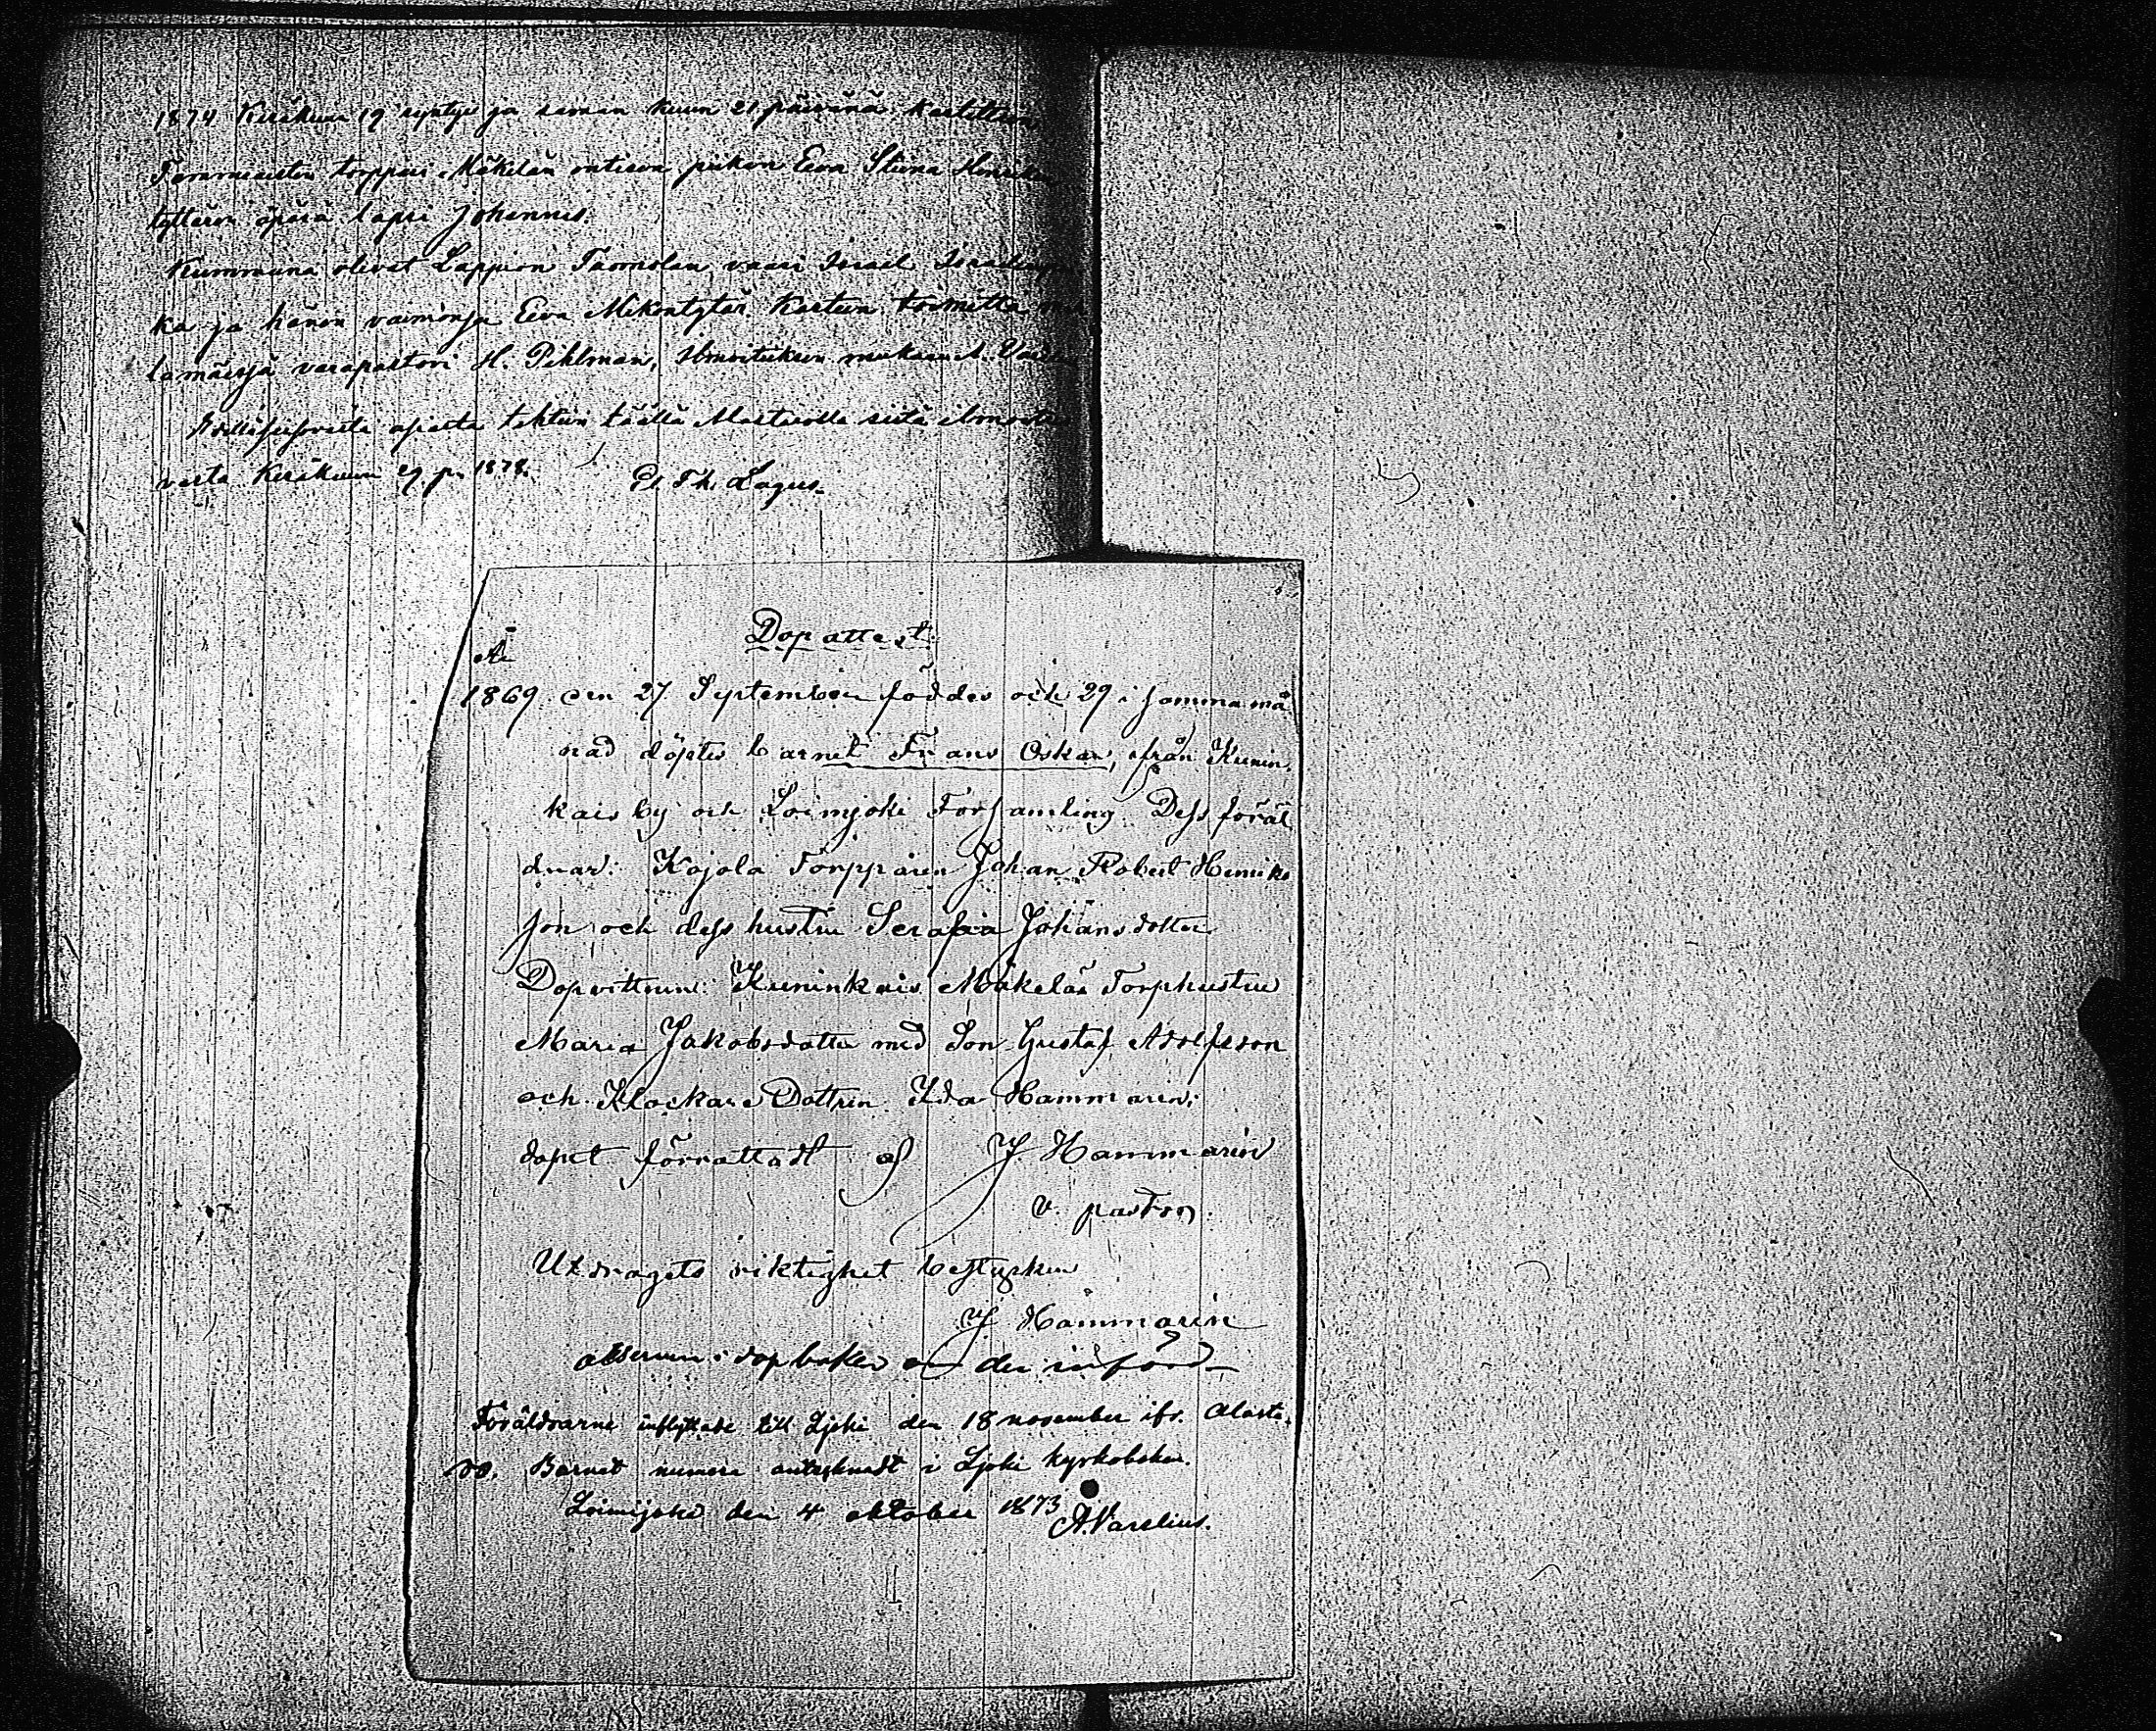 1874 Kesäkuun 19 syntyi ja saman kuun 21 päivänä kastettiin
Tammiaisten torppari Mäkelän entisen piikan Eeva Stiina Henrikin
tyttären äpärä lapsi Johannes.
Kummina olivat Lappion Tammelan vaari Israel
ka ja hänen vaimonsa Eeva Mikontytär. Kasteen toimitta
lamässä varapastori H. Pihlman, Ilmoituksen mukaan A. Varelius
ajasta tehtiin täällä Alastarolla siitä ilmoite
vasta Kesäkuun 29 p. 1878. Es. Th. Lagus.
Dop attest.
År
1869 den 27 September föddes och 29 i samma må
nad döptes barnet Frans Oskar, från Kunin-
kais by och Loimijoki Församling. Dess föräl
drar: Kojola Torpparen Johan Robert Henriks
son och dess hustru Serafia Johansdotter
Dopvittnen: Kuninkais Mäkelä Torphustru
Maria Jakobsdotter med Son Gustaf Adolfsson
och Klockare Dottren Ida Hammarén;
dopet förrättadt af J. Hammarén
v. pastor.
Utdragets riktighet bestyrker
J Hammarén
i dopboken der införd
Föräldrarne inflyttade till Ljoki den 18 november ifr. Alasta-
ro. Barnet numera antecknadt i Ljoki kyrkoboken.
Loimijoki den 4 oktober 1873 A. Varelius.